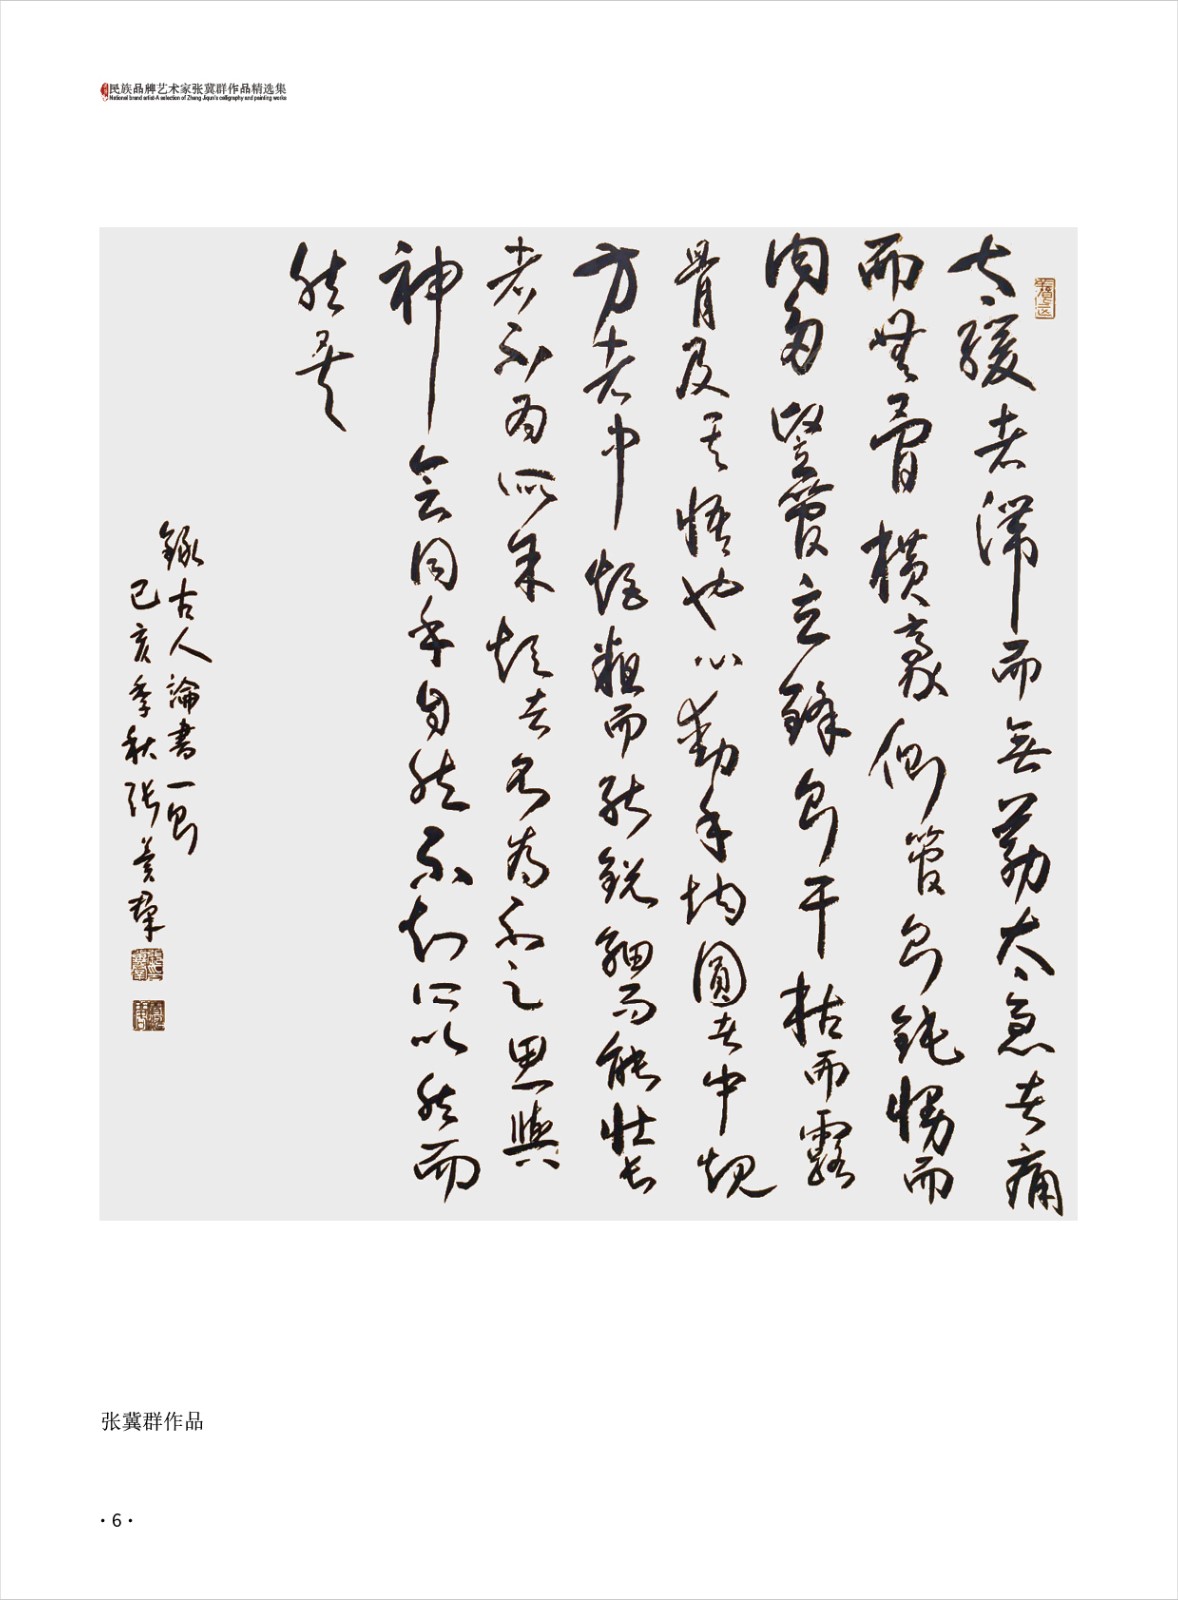 民族品牌艺术家张冀群作品精选集
National brand artist-A selection of Zhang Jiqun's calligraphy and painting works
太緩者滞而無筋太急者病
而無骨橫豪側管則鈍慢而
肉多竪管立鋒則干枯而露
骨及其悟也心動手均圓者中規
方者中矩粗而能銳細而能壯長
者不為有餘短者不為不足思與
神会同乎自然不知所以然而
然矣
錄古人論書一則
己亥季秋張冀群
张冀群作品
·6·